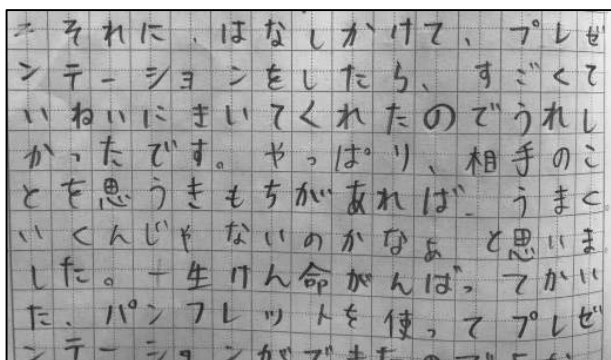 こそれに、はなしかけて、プレゼ
ンテーションをしたら、すごくて
いねいにきいてくれたのでうれし
かったです。やっぱり、相手のこ
とを思うきもちがあれば、うまく
いくんじゃないのかなぁと思いま
した。一生けん命がんばってかい
た、パンフレットを使ってプレゼ
ンテーションができたので